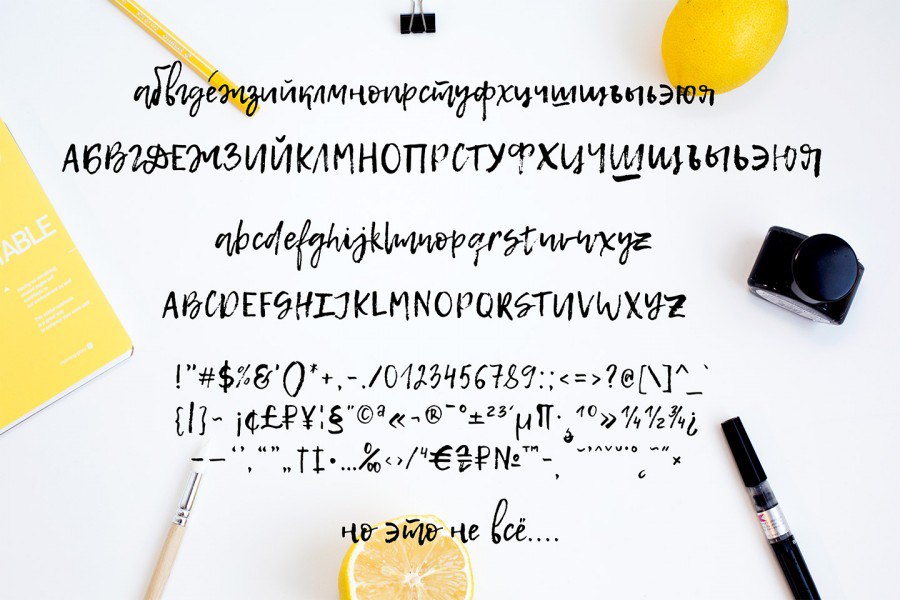 абвгдежзийклмнопрстуфхцчшщъыьэюя
АБВГДЕЖЗИЙКЛМНОПРСТУФХЦЧШЩЪЫЬЭЮЯ
abcdefghijklmnopqrstuvwxyz
ABCDEFGHIJKLMNOPQRSTUVWXYZ
!"#$%&'()*+,-./0123456789:;<=>?@[\]^_`
{|}~ ¡¢£₽¥¦§¨©ª«¬®¯°±²³´µ¶·¸¹º»¼½¾¿
–—‘’‚“”„†‡•…‰‹›⁄⁴€₴₽№™−
но это не всё....
TABLE